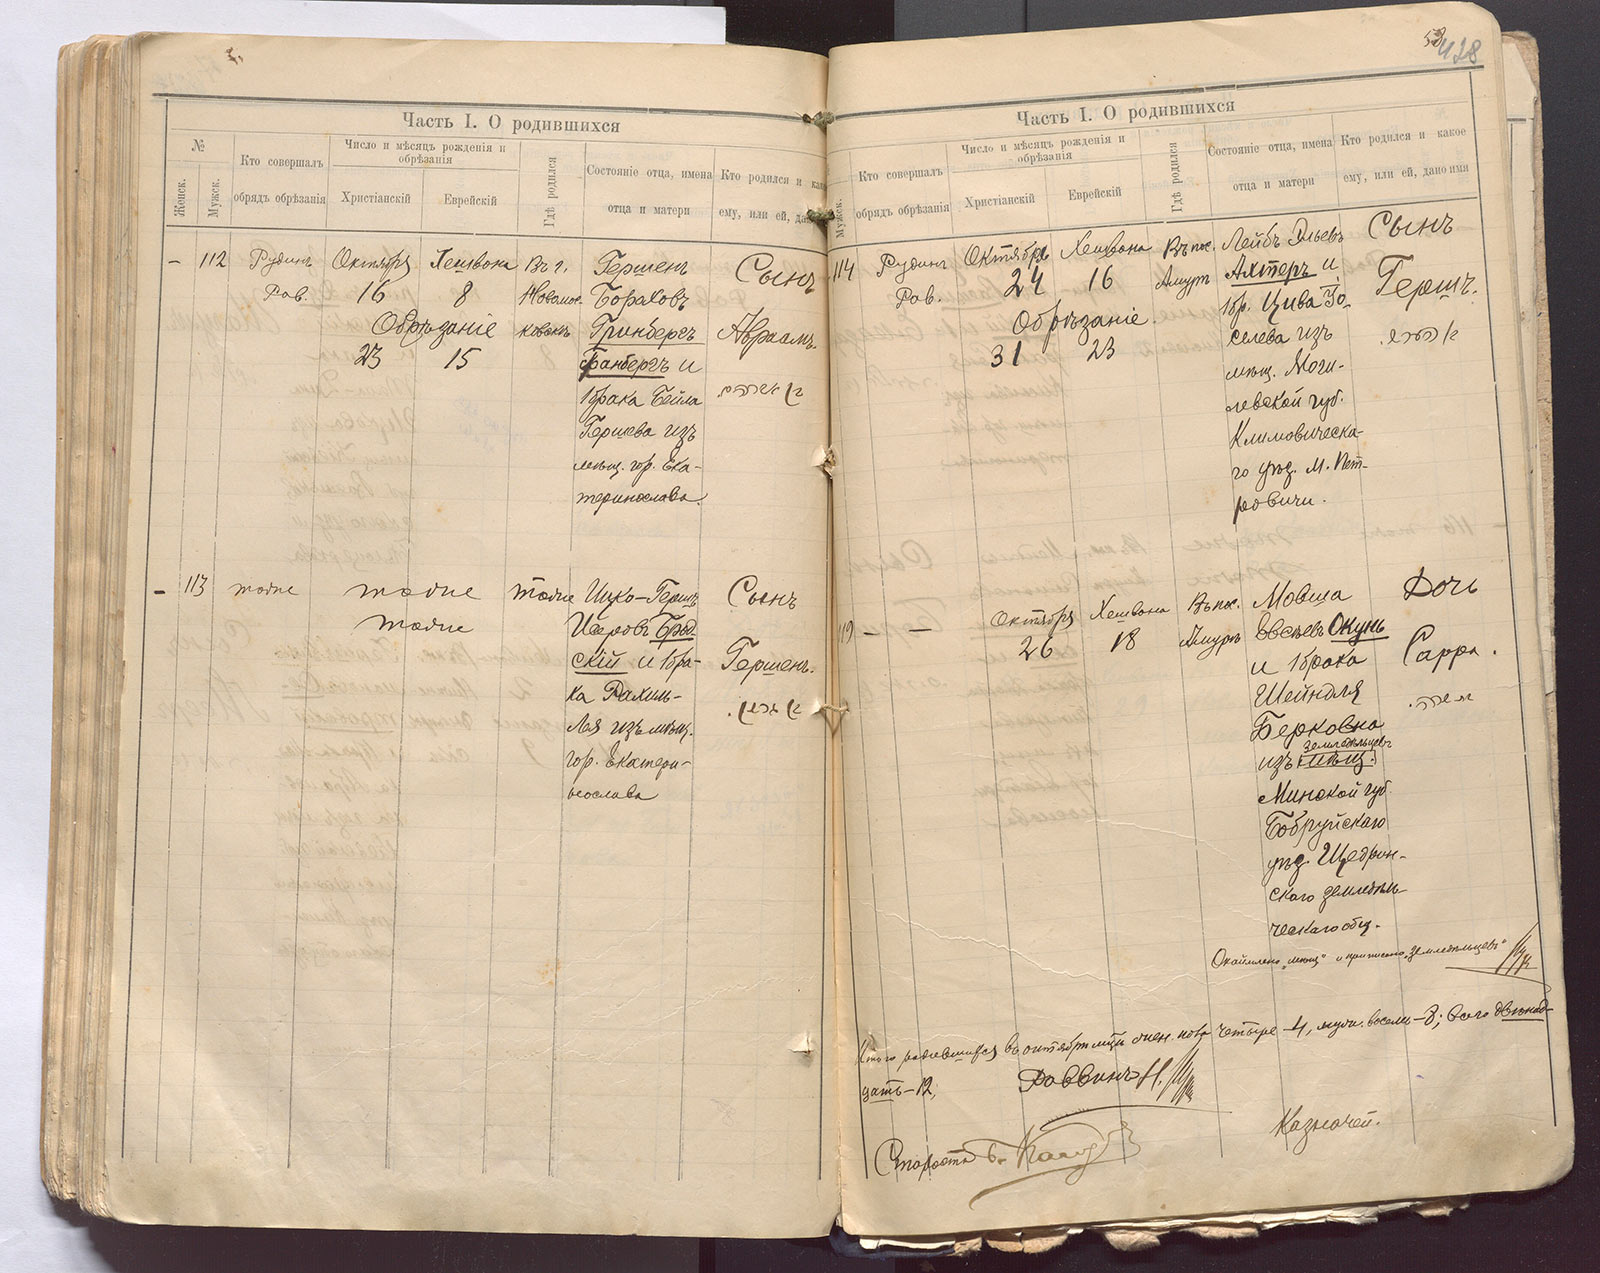 Часть I. О родившихся
№
Женск.
Мужск.
Кто совершалъ
обрядъ обрѣзанія
Число и мѣсяцъ рожденія и
обрѣзанія
Христіанскій
Еврейскій
Гдѣ родился
Состояніе отца, имена
отца и матери
Кто родился и как
ему, или ей, да
– 112
Рудинъ
Рав.
Октября
16
Хешвона
8
Обрѣзаніе
23 15
Въ г.
Новомос-
ковскъ
Гершенъ
Бораховъ
Гринбергъ
Фанбергъ и
1 брака Бейла
Гершева изъ
мѣщ. гор. Ека-
теринослава.
Сынъ
Авраамъ.
– 113
тоже
тоже
тоже
тоже
Ицко-Гершъ
Исеровъ Брод-
скій и 1 бра-
ка Рахиль-
Лея изъ мѣщ.
гор. Екатери-
нослава
Сынъ
Гершенъ.
53
428
Часть I. О родившихся
Мужск.
Кто совершалъ
обрядъ обрѣзанія
Число и мѣсяцъ рожденія и
обрѣзанія
Христіанскій
Еврейскій
Гдѣ родился
Состояніе отца, имена
отца и матери
Кто родился и какое
ему, или ей, дано имя
114
Рудинъ
Рав.
Октября
24
Хешвона
16
Обрѣзаніе.
31 23
Въ пос.
Амуръ
Лейбъ Эльевъ
Ахтеръ и
1 бр. Цива Іо-
селева изъ
мѣщ. Моги-
левской губ.
Климовическа-
го уѣзд. М. Пет-
ровичи.
Сынъ
Гершъ.
– –
Октября
26
Хешвона
18
Въ пос.
Амуръ
Мовша
Евсѣевъ Окунь
и 1 брака
Шейндля
Берковна
землевѣльцевъ
изъ мѣщ.
Минской губ.
Бобруйскаго
уѣзд. Щедрин-
скаго землевѣль
ческаго общ.
Дочь
Сарра.
Окаймлено „мѣщ“ и приписано „землевѣльцевъ“
Итого родившихся въ октябрѣ мцѣ жен. пола четыре – 4, муж. восемь – 8; всего двѣнад-
цать – 12,
Раввинъ
Староста
Казначей.